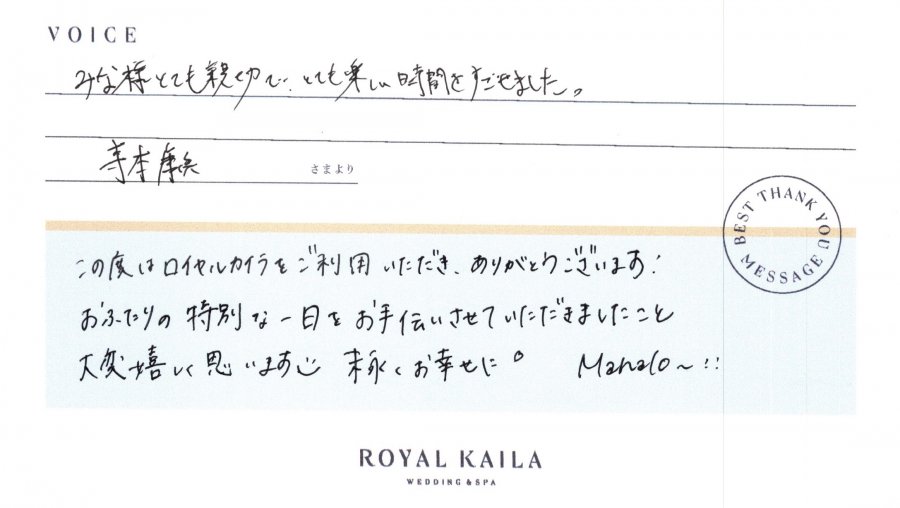 VOICE
みな様とても親切で、とても楽しい時間をすごせました。
寺本 さまより
BEST THANK YOU MESSAGE
この度はロイヤルカイラをご利用いただき、ありがとうございます!
おふたりの特別な一日をお手伝いさせていただきましたこと
大変嬉しく思います 末永くお幸せに。 Mahalo~!!
ROYAL KAILA
WEDDING & SPA